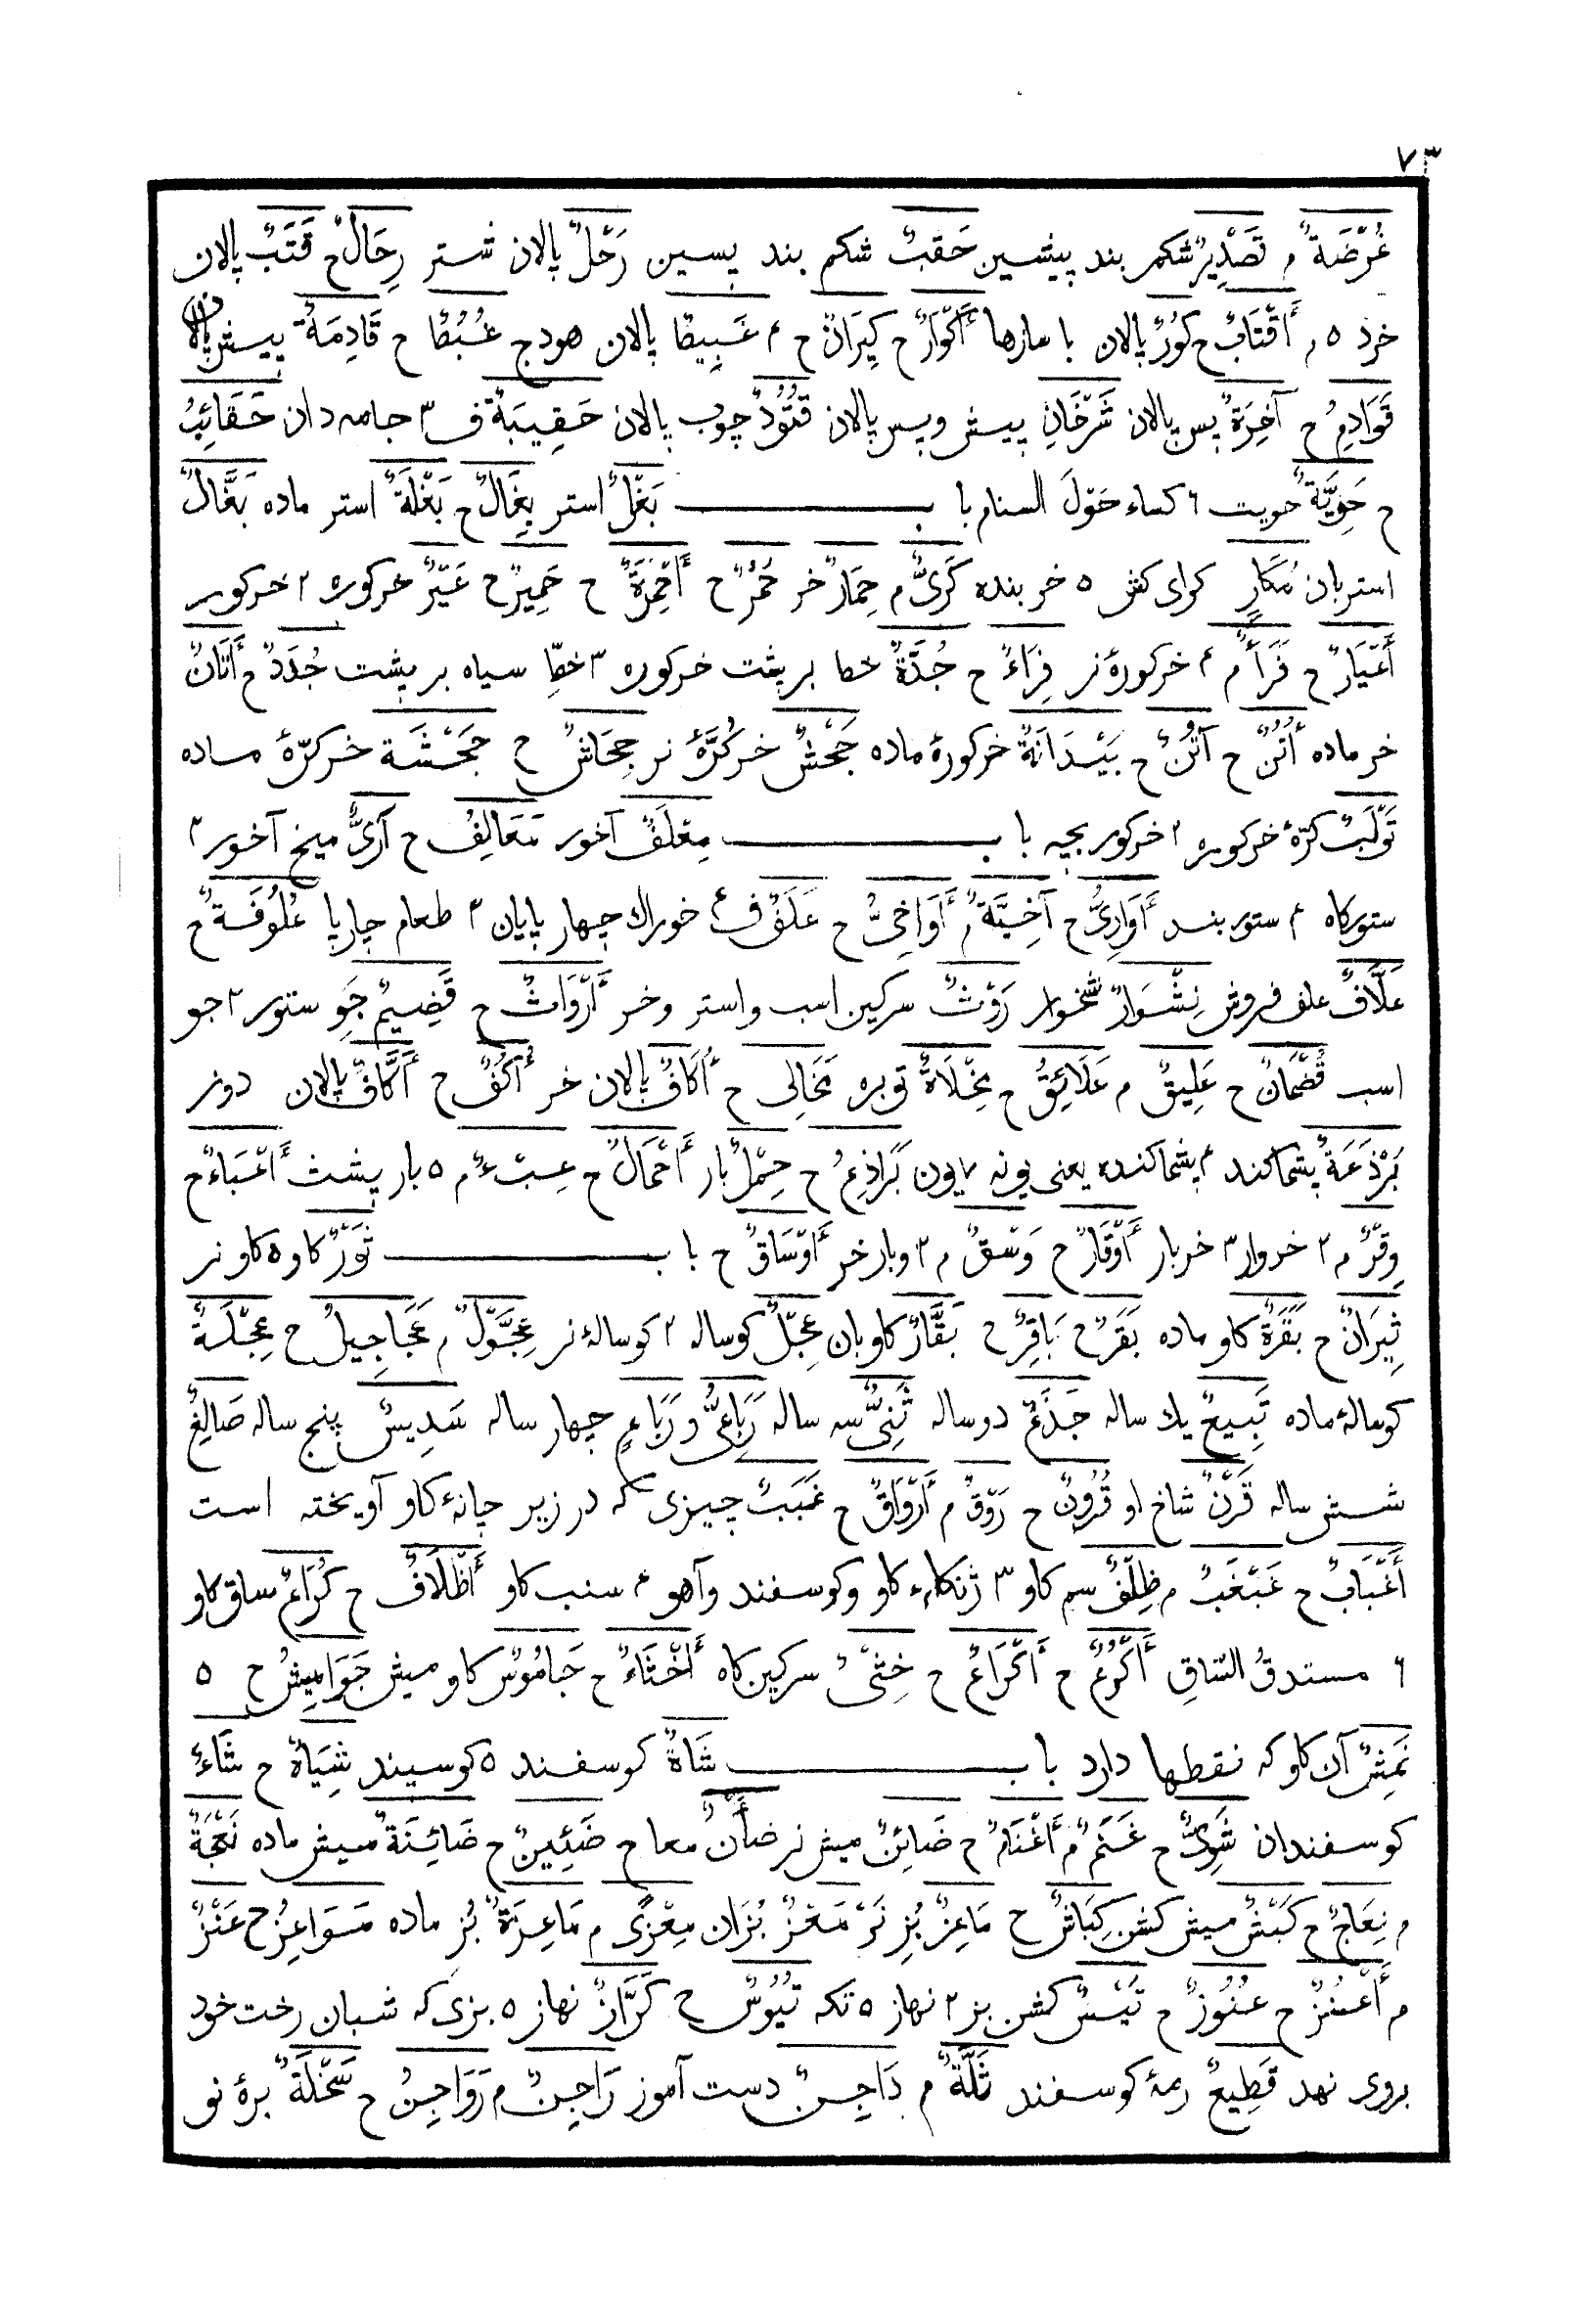 ۷۳
غُرْضَةٌ م تَصْدِيرٌ شكم بند پيشين حَقَبٌ شكم بند پسين رَحْلٌ پالان شتر رِحَالٌ ح قَتَبٌ پالان
خرد ۵ م أَقْتَابٌ ح كُورٌ پالان با سازها أَكْوَارٌ ح كِيرَانٌ ح م غَبِيطٌ پالان هودج غُبُطٌ ح قَادِمَةٌ پيش پالان
قَوَادِمُ ح آخِرَةٌ پس پالان شَرْخَانِ پيش وپس پالان قُتُودٌ چوب پالان حَقِيبَةٌ ف ۳ جامه دان حَقَائِبُ
ح حَوِيَّةٌ حويت ۶ كساء حَوْلَ السنام باب بَغْلٌ استر بِغَالٌ ح بَغْلَةٌ استر ماده بَغَّالٌ
استربان مُكَارٍ كراى كش ۵ خر بنده كَرِىٌّ م حِمَارٌ خر حُمُرٌ ح أَحْمِرَةٌ ح حَمِيرٌ ح عَيْرٌ خركوره ۲ خركور
أَعْيَارٌ ح فَرَأٌ م ۴ خركورۀ نر فِرَاءٌ ح جُدَّةٌ خط بر پشت خركوره ۳ خطّ سياه بر پشت جُدَدٌ ح أَتَانٌ
خر ماده أُتُنٌ ح آتُنٌ ح بَيْدَانَةٌ خركورۀ ماده جَحْشٌ خر كُرَّۀ نر جِحَاشٌ ح جَحْشَة خر كرّۀ ماده
تَوْلَبٌ كرّۀ خركوره ۲ خركور بچه باب مِعْلَفٌ آخور مَعَالِفُ ح آرِىٌّ ميخ آخور ۳
ستوركاه ۴ ستور بند أَوَارِىُّ ح آخِيَّةٌ م أَوَاخِىُّ ح عَلَفٌ ف ۴ خوراك چهار پايان ۳ طعام چارپا عُلُوفَةٌ ح
عَلَّافٌ علف فروش نِشْوَارٌ نشخوار رَوْثٌ سركين اسب واستر وخر أَرْوَاثٌ ح قَضِيمٌ جَوِ ستور ۲ جو
اسب قُضْمَانٌ ح عَلِيقٌ م عَلَائِقُ ح مِخْلَاةٌ توبره مَخَالِى ح أُكَافٌ پالان خر أُكُفٌ ح أَكَّافٌ پالان دوز
بَرْذَعَةٌ پشماكند ۴ پشماكنده يعنى پونه ۷ يون بَرَاذِعُ ح حِمْلٌ بار أَحْمَالٌ ح عِبْءٌ م ۵ بار پشت أَعْبَاءٌ ح
وِقْرٌ م ۲ خروار ۳ خربار أَوْقَارٌ ح وَسْقٌ م ۳ وبار خر أَوْسَاقٌ ح باب ثَوْرٌ كاو ۵ كاو نر
ثِيرَانٌ ح بَقَرَةٌ كاو ماده بَقَرٌ ح بَاقِرٌ ح بَقَّارٌ كاوبان عِجْلٌ كوساله ۲ كوسالۀ نر عِجَّوْلٌ م عَجَاجِيلُ ح عِجْلَةٌ
كوسالۀ ماده تَبِيعٌ يك ساله جَذَعٌ دو ساله ثَنِىٌّ سه ساله رَبَاعِىٌّ ورَبَاعٍ چهار ساله سَدِيسٌ پنج ساله صَالِغٌ
شش ساله قَرْنٌ شاخ او قُرُونٌ ح رَوْقٌ م أَرْوَاقٌ ح غَبَبٌ چيزى كه در زير چانۀ كاو آويخته است
أَغْبَابٌ ح غَبْغَبٌ م ظِلْفٌ سم كاو ۳ ژنكلۀ كاو وكوسفند وآهو ۴ سنب كاو أَظْلَافٌ ح كُرَاعٌ ساق كاو
۶ مستدقُ السّاقِ أَكْرُعٌ ح أَكْرَاعٌ ح خِثْىٌ سركين كاه أَخْثَاءٌ ح جَامُوسٌ كاو ميش جَوَامِيسُ ح ۵
نَمِشٌ آن كاو كه نقطها دارد باب شَاةٌ كوسفند ۵ كوسپند شِيَاهٌ ح شَاءٌ
كوسفندان شَوِىٌّ ح غَنَمٌ م أَغْنَامٌ ح ضَائِنٌ ميش نر ضَأْنٌ معا ح ضَئِينٌ ح ضَائِنَةٌ ميش ماده نَعْجَةٌ
م نِعَاجٌ ح كَبْشٌ ميش كشن كِبَاشٌ ح مَاعِزٌ بُزِ نَرْ مَعْزٌ بُزَان مِعْزًى م مَاعِزَةٌ بُزِ ماده مَوَاعِزُ ح عَنْزٌ
م أَعْنُزٌ ح عُنُوزٌ ح تَيْسٌ كشن بز ۲ نهاز ۵ تكه تُيُوسٌ ح كَرَّازٌ نهاز ۵ بزى كه شبان رخت خود
بروى نهد قَطِيعٌ رمۀ كوسفند ثَلَّةٌ م دَاجِنٌ دست آموز رَاجِنٌ م رَوَاجِنُ ح سَخْلَةٌ برۀ نو